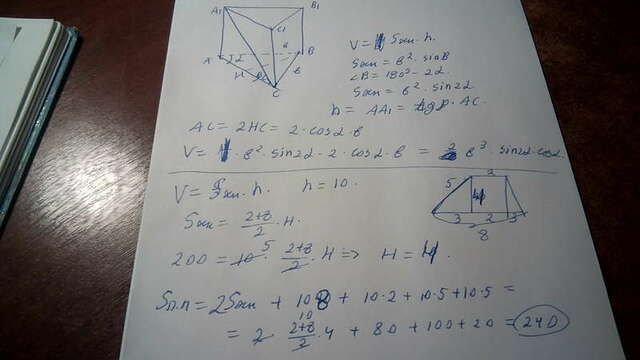 A₁ B₁
C₁
A B
H в
C
V = Sосн · h.
Sосн = в² · sinB
∠B = 180° - 2α
Sосн = в² · sin2α
h = AA₁ = tgβ · AC.
AC = 2HC = 2 · cosα · в
V = в² · sin2α · 2 · cosα · в = 2 в³ · sin2α · cosα.
V = Sосн · h. h = 10.
Sосн = 2+8/2 · H.
200 = 10 · 2+8/2 · H => H = 4.
2
5 4
3 2 3
8
Sп.п = 2Sосн + 10·8 + 10·2 + 10·5 + 10·5 =
= 2 · 2+8/2 · 4 + 80 + 100 + 20 = 240